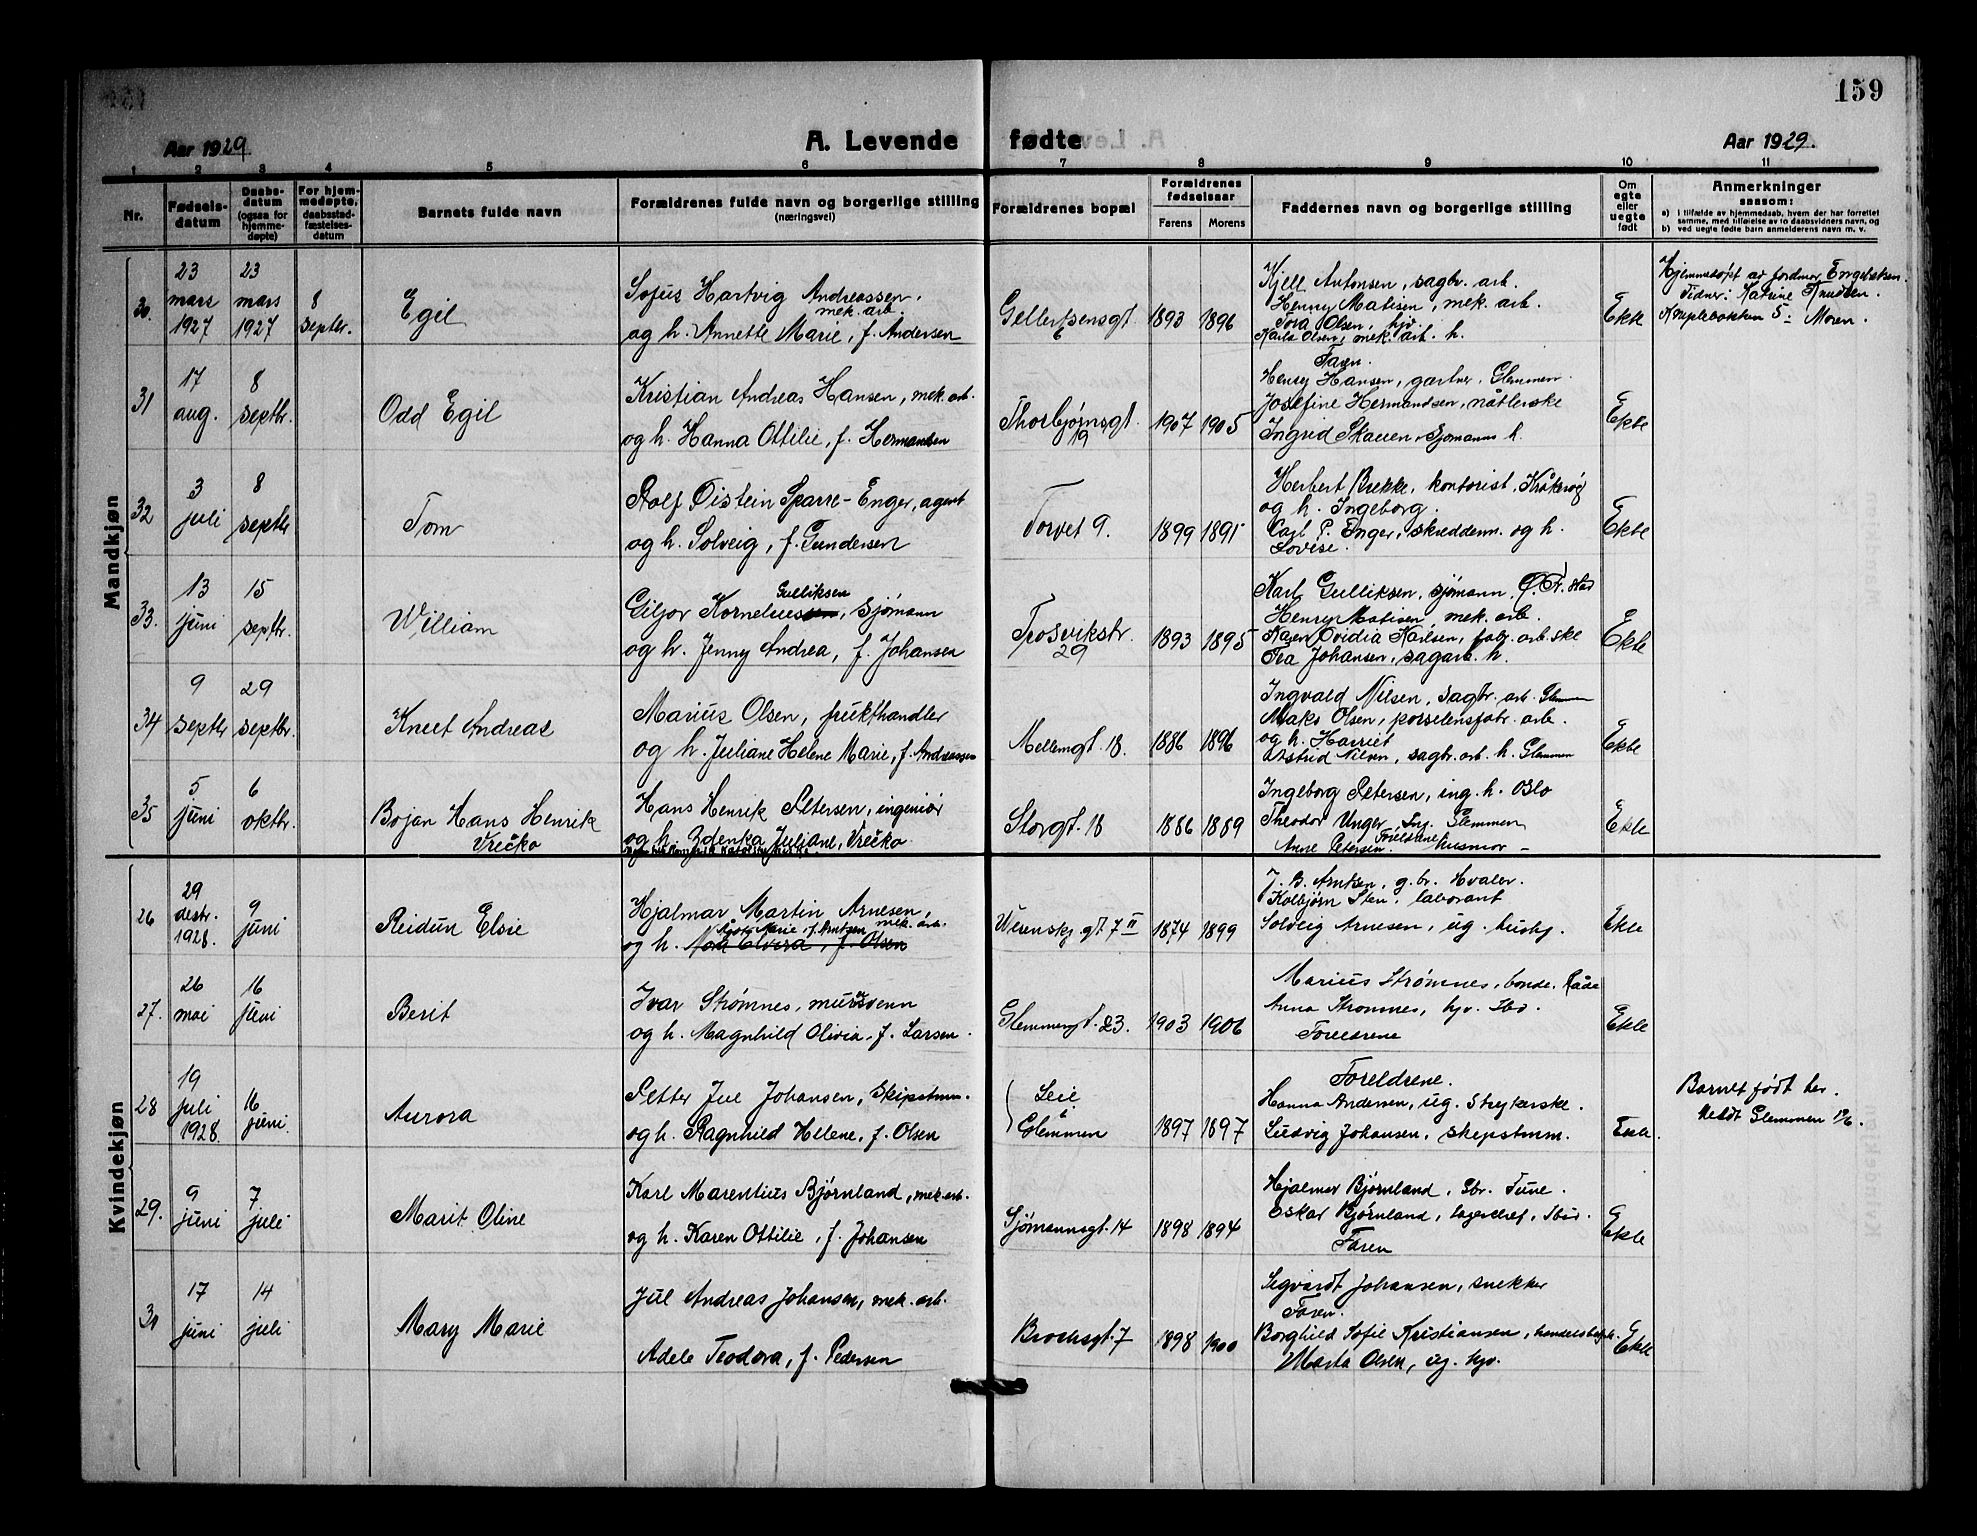 159
Aar 1929
A. Levende fødte
Aar 1929.
1 2 3 4 5 6 7 8 9 10 11
Nr.
Fødsels-
datum
Daabs-
datum
(ogsaa for
hjemme-
døpte)
For hjem-
medøpte,
daabsstad-
fæstelses-
datum
Barnets fulde navn
Forældrenes fulde navn og borgerlige stilling
(næringsvei)
Forældrenes bopæl
Forældrenes
fødselsaar
Farens
Morens
Faddernes navn og borgerlige stilling
Om
egte
eller
uegte
født
Anmerkninger
saasom:
a) i tilfælde av hjemmedaab, hvem der har forrettet
samme, med tilføielse av to daabsvidners navn, og
b) ved uegte fødte barn anmelderens navn m. v.
Mandkjøn
30.
23
mars
1927
23
mars
1927
8
septbr.
Egil
Sofus Hartvig Andreassen,
mek. arb.
og h. Annette Marie, f. Andersen
1893
1896
Kjell Antonsen, sagbr. arb.
Henny Matisen, mek. arb.
Tora Olsen, hjv.
Karla Olsen, mek. arb. h.
Ekte
Hjemmedøpt av jordmor Engebretsen.
Vidner: Katrine Knudsen.
Moren.
31
17
aug.
8
septbr.
Odd Egil
Kristian Andreas Hansen, mek. arb.
og h. Hanna Ottilie, f. Hermansen
Thorbjørnsgt.
19
1907
1905
Faren.
Henry Hansen, gartner, Glemmen.
Josefine Hermandsen, nåtlerske
Ingrid Skauen, sjømanns h.
Ekte
32
3
juli
8
septbr
Tom
Rolf Øistein Sparre-Enger, agent
og h. Solveig, f. Gundersen
Torvet 9.
1899
1891
Herbert Brekke, kontorist, Kråkerøy
og h. Ingeborg.
Carl P. Enger, skredderm. og h.
Lovise.
Ekte
33.
13
juni
15
septbr.
William
Gulliksen
Giljor Kornelius, sjømann
og h. Jenny Andrea, f. Johansen
Trosvikstr.
29
1893
1895
Karl Gulliksen, sjømann, Ø. Fr.stad
Henry Matisen, mek. arb.
Karen Ovidia Karlsen, fabr. arb.ske
Tea Johansen, sagarb. h.
Ekte
34
9
septbr
29
septbr.
Knut Andreas
Marius Olsen, frukthandler
og h. Juliane Helene Marie, f. Andreassen
Mellemgt. 18.
1886
1896
Ingvald Nilsen, sagbr. arb. Glemmen
Maks Olsen, porselensfabr. arb.
og h. Harriet
Astrid Nilsen, sagbr. arb. h. Glemmen
Ekte
35
5
juni
6
oktbr.
Bojan Hans Henrik
Vrečko
Hans Henrik Petersen, ingeniør
og h. Zdenka Juliane, Vrečko.
Storgt. 18
1886
1889
Ingeborg Petersen, ing. h. Oslo
Theodor Unger, Ing. Glemmen
Anne Petersen. Foreldrene husmor
Ekte
Kvindekjøn
26
29
desbr.
1928.
9
juni
Reidun Elsie
Hjalmar Martin Arnesen,
mek. arb.
Marie, f. Arntsen
og h. Elvera, f. Olsen
Werenskj. gt. 7 II
1874
1899
J. B. Arntsen, g.br. Hvaler.
Kolbjørn Sten, laborant
Solveig Arnesen, ug. hushj.
Ekte
27.
26
mai
16
juni
Berit
Ivar Strømnes, mursvenn
og h. Magnhild Olivia, f. Larsen.
Glemmengt. 23.
1903
1906
Marius Strømnes, bonde, Råde
Anna Strømnes, hjv. Ibd.
Foreldrene
Ekte
28
19
juli
1928.
16
juni.
Aurora
Petter Jul Johansen, skipstmm.
og h. Ragnhild Helene, f. Olsen
Leie
i
Glemmen
1897
1897
Foreldrene.
Hanna Andersen, ug. strykerske.
Ludvig Johansen, skipstmm.
Ekte.
Barnet født her.
Meldt Glemmen
29.
9
juni
7
juli
Marit Oline
Karl Marentius Bjørnland, mek. arb.
og h. Karen Ottilie, f. Johansen
Sjømannsgt. 14
1898
1894
Hjalmar Bjørnland, Gbr. Tune.
Oskar Bjørnland, lagerchef, Ibid.
Faren
Ekte
17
juni
14
juli
Mary Marie
Jul Andreas Johansen, mek. arb.
Adele Teodora, f. Pedersen
Brochsgt. 7
1898
1900
Sigvardt Johansen, snekker
Faren.
Borghild Sofie Kristiansen,
Marta Olsen, ug. hjv.
Ekte